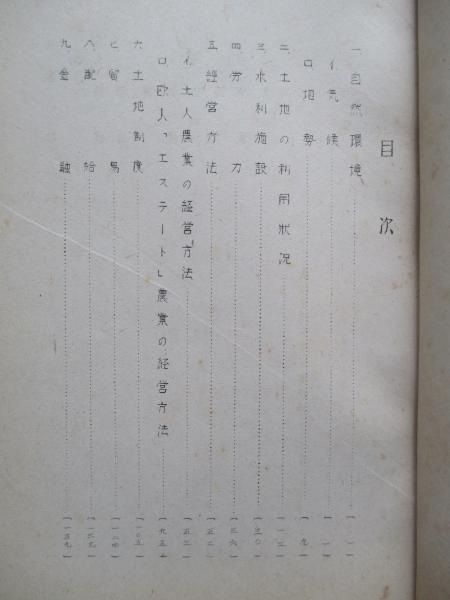 目次
一、自然環境……(一)
イ、気候……(一)
ロ、地勢……(九)
二、土地の利用状況……(一二)
三、水利施設……(三〇)
四、労力……(三六)
五、経営方法……(五二)
イ、土人農業の経営方法……(五三)
ロ、欧人「エステート」農業の経営方法……(九五)
六、土地制度……(一〇五)
七、貿易……(一二四)
八、配給……(一三九)
九、金融……(一五九)